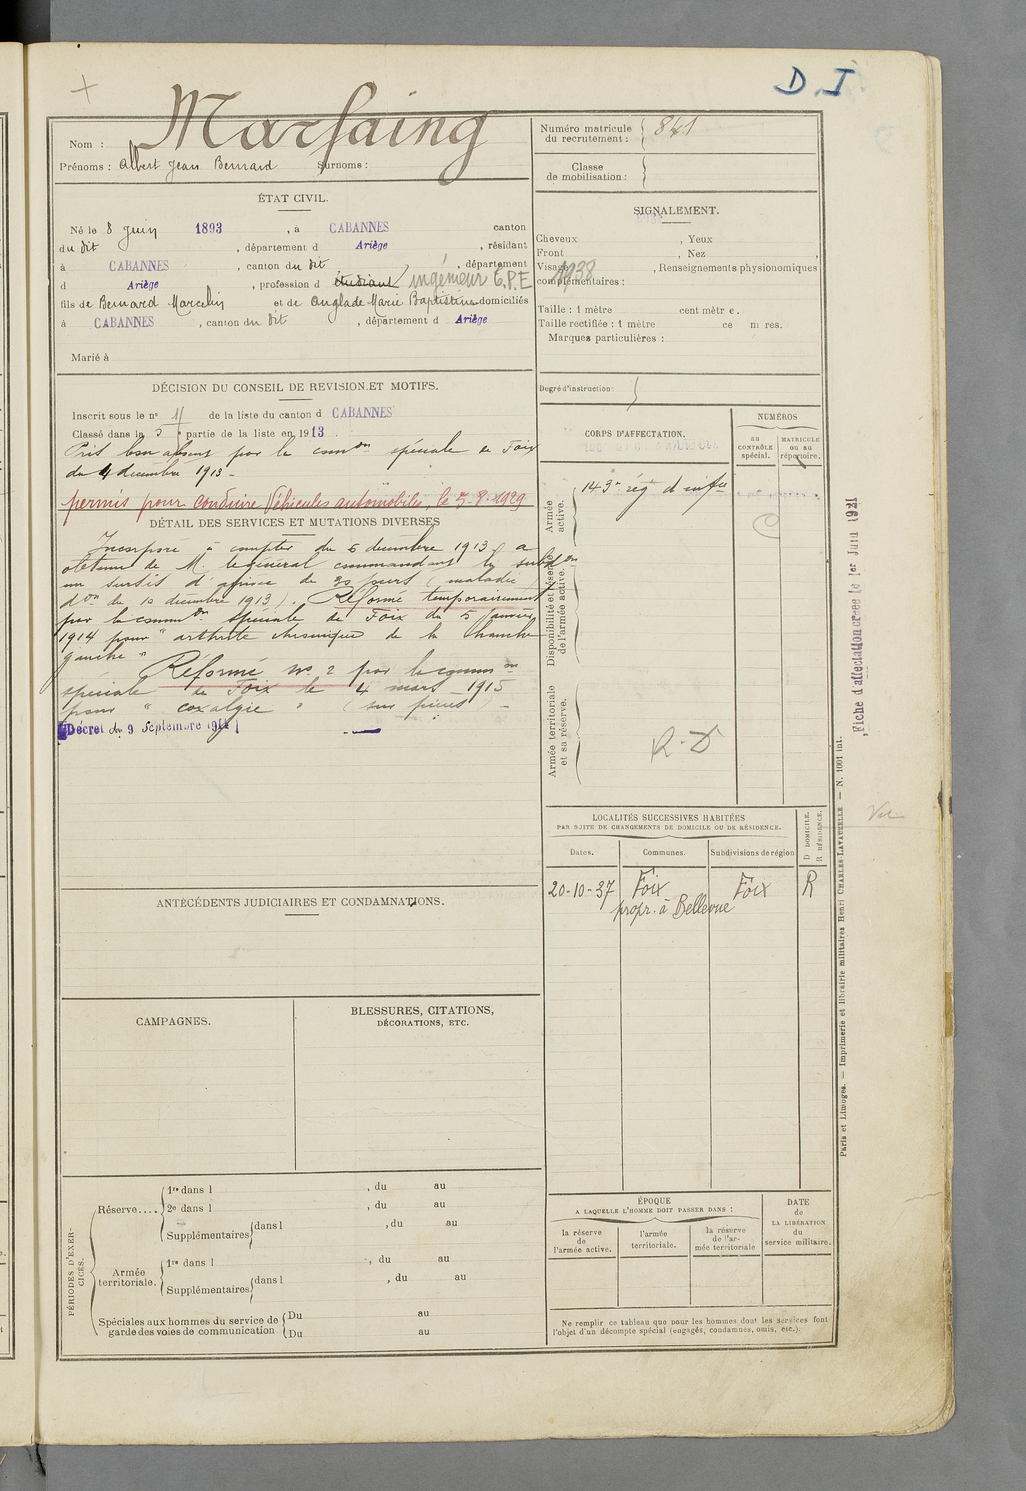 D.I
Nom : Marfaing
Prénoms : Albert Jean Bernard Surnoms :
Numéro matricule du recrutement : 841
Classe de mobilisation :
ÉTAT CIVIL.
Né le 8 juin 1893, à CABANNES canton
du dit, département d Ariège, résidant
à CABANNES, canton du dit, département
d Ariège, profession d étudiant ingénieur T.P.E
fils de Bernard Marcelin et de Anglade Marie Baptistine domiciliés
à CABANNES, canton du dit, département d Ariège
Marié à
SIGNALEMENT.
Cheveux , Yeux
Front , Nez ,
Visage 1938 , Renseignements physionomiques
complémentaires :
Taille : 1 mètre centimètres.
Taille rectifiée : 1 mètre ce m res.
Marques particulières :
Degré d'instruction :
DÉCISION DU CONSEIL DE REVISION ET MOTIFS.
Inscrit sous le n° 11 de la liste du canton d CABANNES
Classé dans la 5e partie de la liste en 1913.
Pris bon absent par la comon spéciale de Foix
du 4 décembre 1913 -
permis pour conduire Véhicules automobiles, le 5-8-1929
DÉTAIL DES SERVICES ET MUTATIONS DIVERSES
Incorporé à compter du 6 décembre 1913, a
obtenu de M. le général commandant la subdon
un sursis d'arrivée de 30 jours (maladie
don du 10 décembre 1913). Réformé temporairement
par la common spéciale de Foix du 5 janvier
1914 pour "arthrite chronique de la hanche
gauche"
Réformé no 2 par la common
spéciale de Foix le 4 mars 1915
pour "coxalgie" (sur pièces) -
Décret du 9 Septembre 1914
CORPS D'AFFECTATION.
NUMÉROS
AU CONTRÔLE spécial.
MATRICULE OU AU répertoire.
Armée active.
143e rég d'infie
Disponibilité et réserve de l'armée active.
Armée territoriale et sa réserve.
R.D
Fiche d'affectation créée le 1er Juin 1921
LOCALITÉS SUCCESSIVES HABITÉES
PAR SUITE DE CHANGEMENTS DE DOMICILE OU DE RÉSIDENCE.
D DOMICILE.
R RÉSIDENCE.
Dates. Communes. Subdivisions de région
20-10-37 Foix Foix R
propr. à Bellevue
ANTÉCÉDENTS JUDICIAIRES ET CONDAMNATIONS.
CAMPAGNES.
BLESSURES, CITATIONS,
DÉCORATIONS, ETC.
PÉRIODES D'EXERCICES.
Réserve....
1re dans l , du au
2e dans l , du au
Supplémentaires dans l , du au
Armée territoriale.
1re dans l , du au
Supplémentaires dans l , du au
Spéciales aux hommes du service de garde des voies de communication
Du au
Du au
ÉPOQUE
A LAQUELLE L'HOMME DOIT PASSER DANS :
la réserve de l'armée active.
l'armée territoriale.
la réserve de l'armée territoriale
DATE de LA LIBÉRATION du service militaire.
Ne remplir ce tableau que pour les hommes dont les services font
l'objet d'un décompte spécial (engagés, condamnés, omis, etc.).
Paris et Limoges. — Imprimerie et librairie militaires Henri CHARLES-LAVAUZELLE — N. 1001 int.